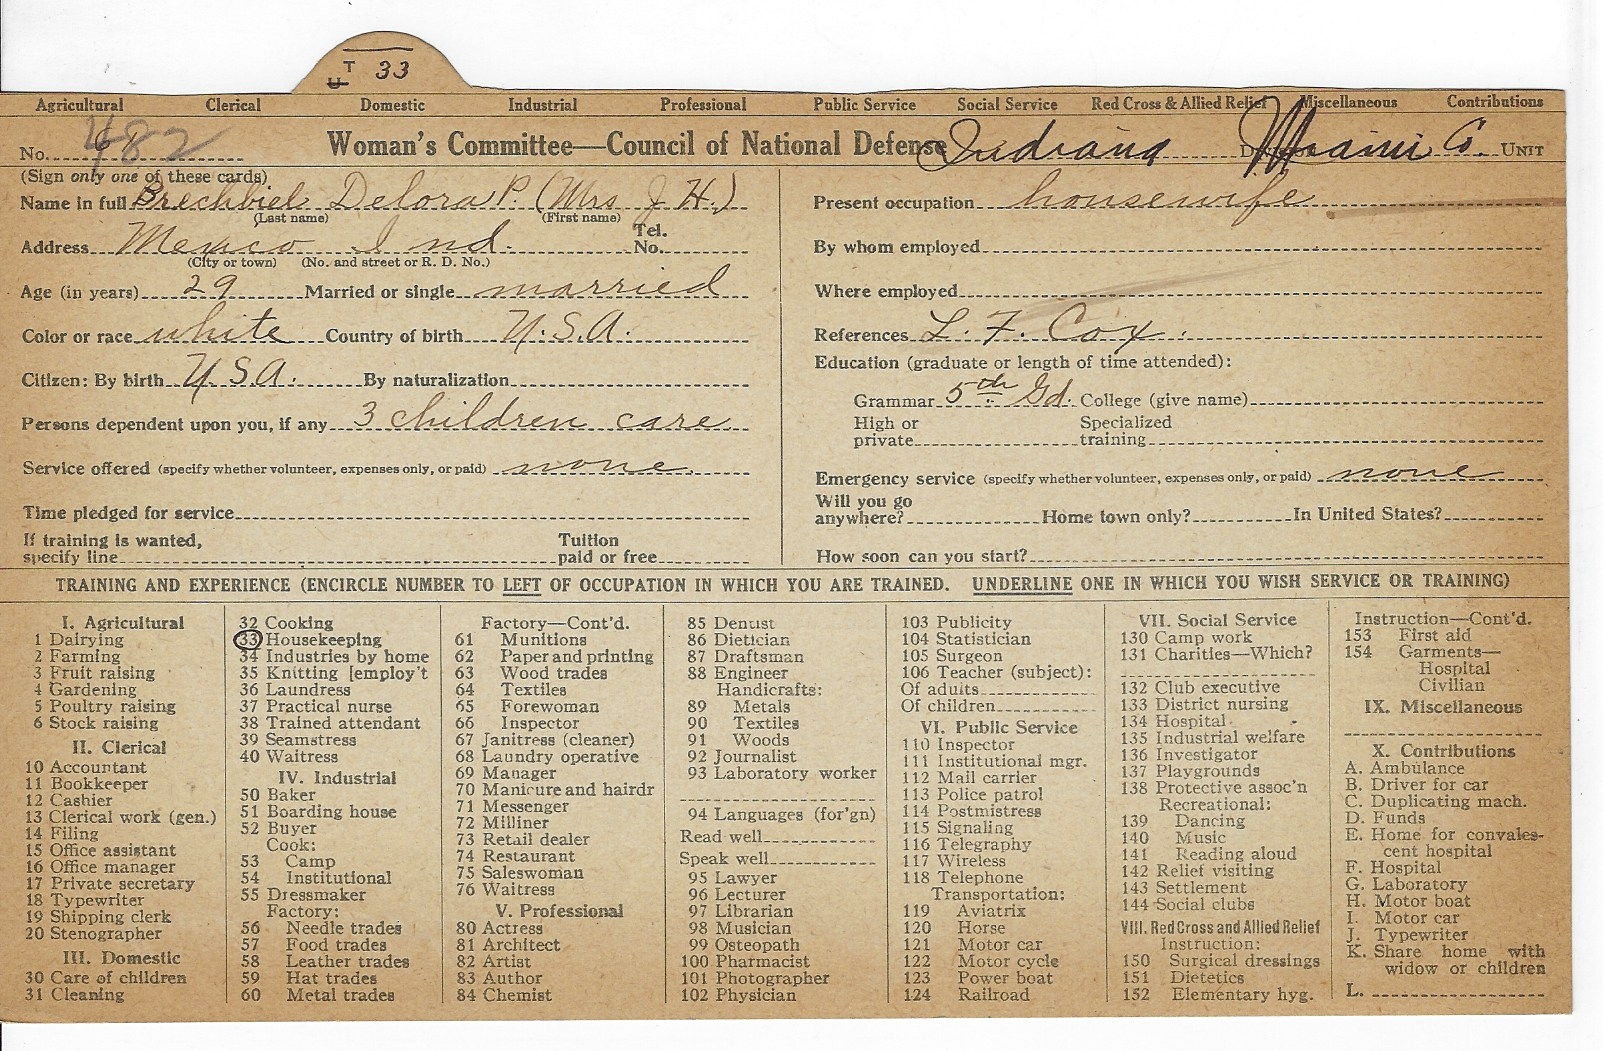 UT 33
Agricultural Clerical Domestic Industrial Professional Public Service Social Service Red Cross & Allied Relief Miscellaneous Contributions
No. 482 Woman's Committee—Council of National Defense Indiana Division Miami Co. UNIT
(Sign only one of these cards)
Name in full Brechbiel Delora P. (Mrs J. H.)
(Last name) (First name)
Address Mexico Ind. Tel. No.
(City or town) (No. and street or R. D. No.)
Age (in years) 29 Married or single married
Color or race white Country of birth U.S.A.
Citizen: By birth U.S.A. By naturalization
Persons dependent upon you, if any 3 children care
Service offered (specify whether volunteer, expenses only, or paid) none
Time pledged for service
If training is wanted, specify line Tuition paid or free
Present occupation housewife
By whom employed
Where employed
References L. F. Cox.
Education (graduate or length of time attended):
Grammar 5th Gd. College (give name)
High or private Specialized training
Emergency service (specify whether volunteer, expenses only, or paid) none
Will you go anywhere? Home town only? In United States?
How soon can you start?
TRAINING AND EXPERIENCE (ENCIRCLE NUMBER TO LEFT OF OCCUPATION IN WHICH YOU ARE TRAINED. UNDERLINE ONE IN WHICH YOU WISH SERVICE OR TRAINING)
I. Agricultural
1 Dairying
2 Farming
3 Fruit raising
4 Gardening
5 Poultry raising
6 Stock raising
II. Clerical
10 Accountant
11 Bookkeeper
12 Cashier
13 Clerical work (gen.)
14 Filing
15 Office assistant
16 Office manager
17 Private secretary
18 Typewriter
19 Shipping clerk
20 Stenographer
III. Domestic
30 Care of children
31 Cleaning
32 Cooking
33 Housekeeping
34 Industries by home
35 Knitting [employ't
36 Laundress
37 Practical nurse
38 Trained attendant
39 Seamstress
40 Waitress
IV. Industrial
50 Baker
51 Boarding house
52 Buyer
Cook:
53 Camp
54 Institutional
55 Dressmaker
Factory:
56 Needle trades
57 Food trades
58 Leather trades
59 Hat trades
60 Metal trades
Factory—Cont'd.
61 Munitions
62 Paper and printing
63 Wood trades
64 Textiles
65 Forewoman
66 Inspector
67 Janitress (cleaner)
68 Laundry operative
69 Manager
70 Manicure and hairdr
71 Messenger
72 Milliner
73 Retail dealer
74 Restaurant
75 Saleswoman
76 Waitress
V. Professional
80 Actress
81 Architect
82 Artist
83 Author
84 Chemist
85 Dentist
86 Dietician
87 Draftsman
88 Engineer
Handicrafts:
89 Metals
90 Textiles
91 Woods
92 Journalist
93 Laboratory worker
94 Languages (for'gn)
Read well
Speak well
95 Lawyer
96 Lecturer
97 Librarian
98 Musician
99 Osteopath
100 Pharmacist
101 Photographer
102 Physician
103 Publicity
104 Statistician
105 Surgeon
106 Teacher (subject):
Of adults
Of children
VI. Public Service
110 Inspector
111 Institutional mgr.
112 Mail carrier
113 Police patrol
114 Postmistress
115 Signaling
116 Telegraphy
117 Wireless
118 Telephone
Transportation:
119 Aviatrix
120 Horse
121 Motor car
122 Motor cycle
123 Power boat
124 Railroad
VII. Social Service
130 Camp work
131 Charities—Which?
132 Club executive
133 District nursing
134 Hospital
135 Industrial welfare
136 Investigator
137 Playgrounds
138 Protective assoc'n
Recreational:
139 Dancing
140 Music
141 Reading aloud
142 Relief visiting
143 Settlement
144 Social clubs
VIII. Red Cross and Allied Relief
Instruction:
150 Surgical dressings
151 Dietetics
152 Elementary hyg.
Instruction—Cont'd.
153 First aid
154 Garments—
Hospital
Civilian
IX. Miscellaneous
X. Contributions
A. Ambulance
B. Driver for car
C. Duplicating mach.
D. Funds
E. Home for convales-
cent hospital
F. Hospital
G. Laboratory
H. Motor boat
I. Motor car
J. Typewriter
K. Share home with
widow or children
L.